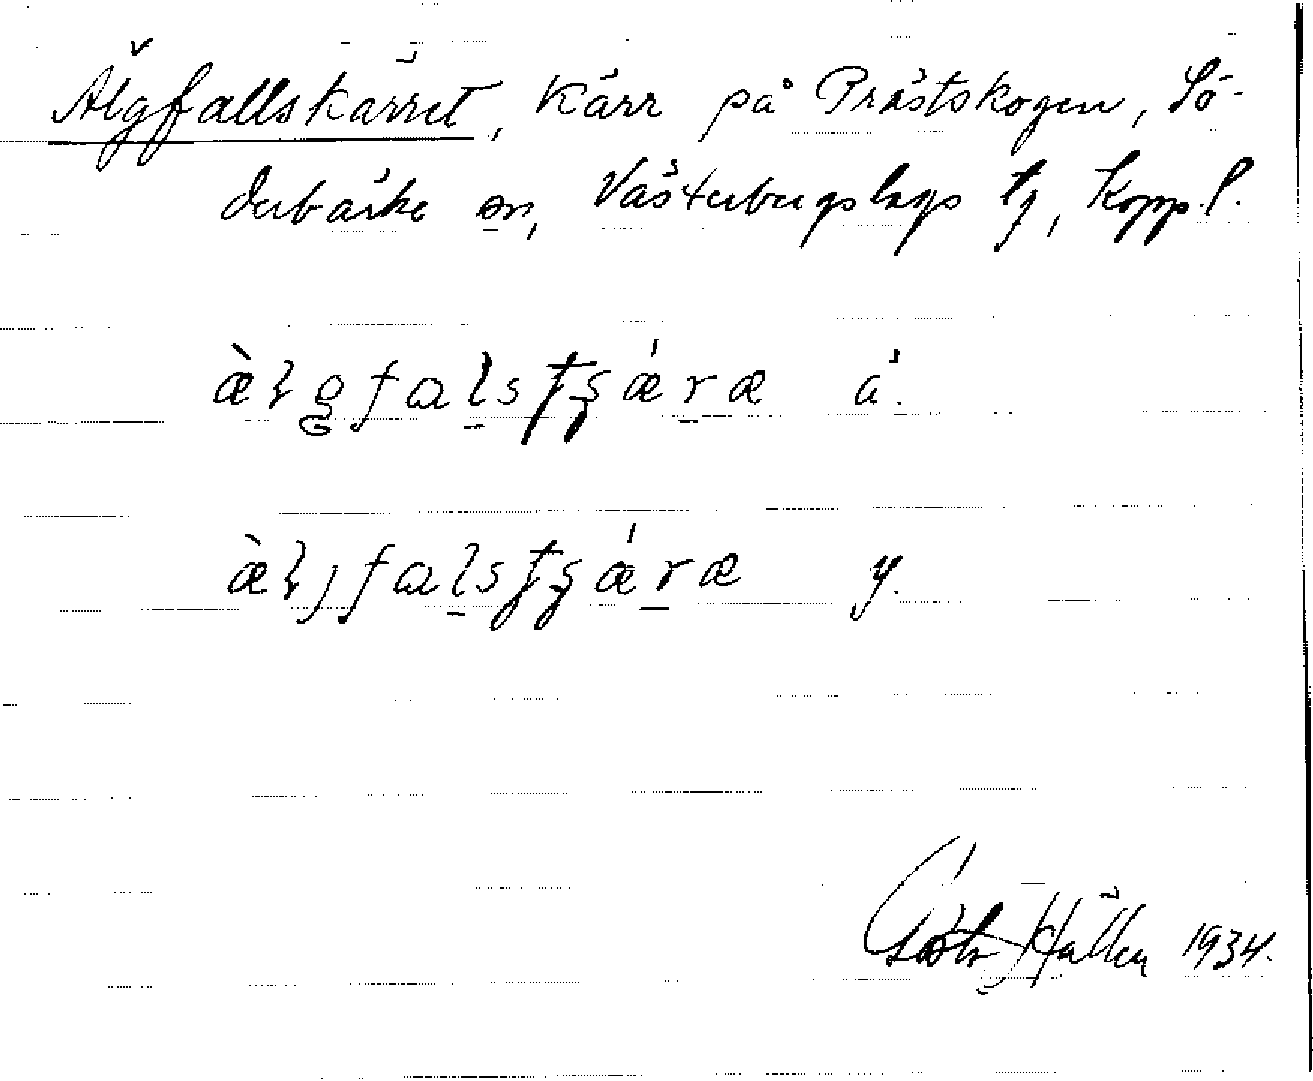 Älgfallskärret, Kärr på Prästskogen, Sö-
derbärke sn, Västerbergslags tg, Kopp. l.
æ̀lgfalsʈʂǽræ ä.
æ̀ljfalsʈʂǽræ y.
Gösta Hållen 1934.